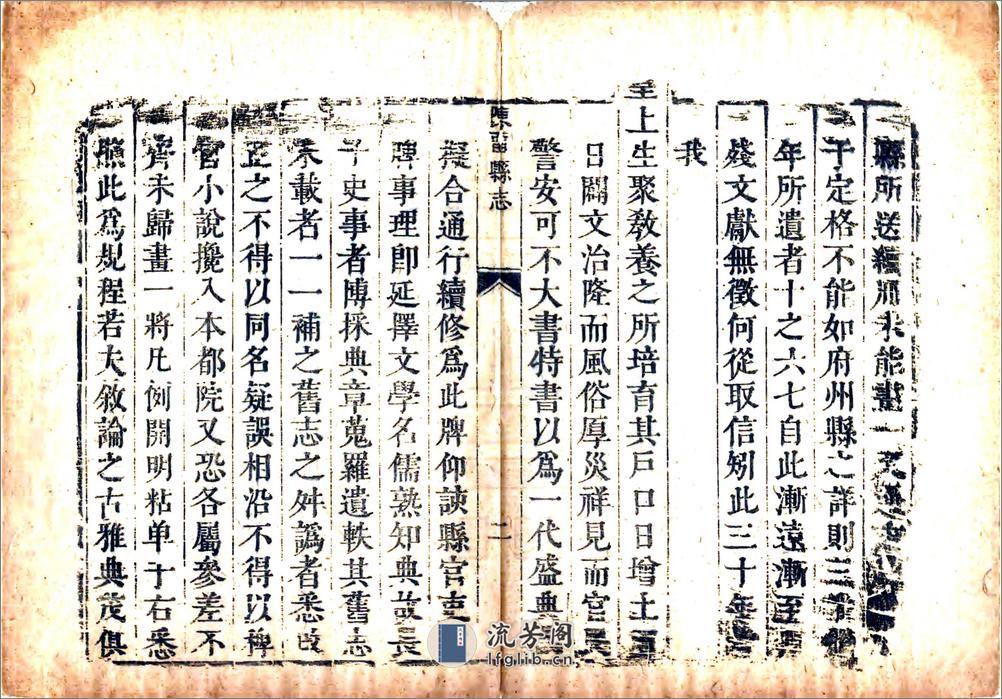 縣所送續 未能畫一
于定格不能如府州縣之詳則三十
年所遺者十之六七自此漸遠漸至
殘文獻無徵何從取信矧此三十年
我
皇上生聚敎養之所培育其戶口日增土
日闢文治隆而風俗厚災祥見而官
警安可不大書特書以爲一代盛典
陳留縣志
二
擬合通行續修爲此牌仰該縣官吏
牌事理卽延擇文學名儒熟知典故長
于史事者博採典章蒐羅遺軼其舊志
未載者一一補之舊志之舛譌者悉改
正之不得以同名疑誤相沿不得以稗
官小說攙入本都院又恐各屬參差不
齊未歸畫一將凡例開明粘单于右悉
照此爲規程若大敘論之古雅典茂俱
流芳阁
lfglib.cn